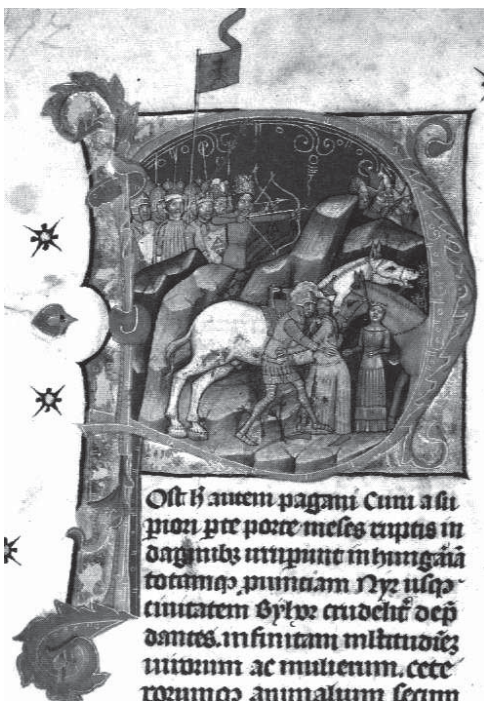 Ost h̄ autem pagani Cuni a su
piori pte porte meses ruptis in
daginibꝫ irrupiunt in hungaīā
totamqꝫ ꝓuinciam Nyr usqꝫ
ciuitatem Byhor crudelit̄ dep̄
dantes. infinitam ml̄titudiēꝫ
uirorum ac mulierum. cete
rorumqꝫ animalium secum